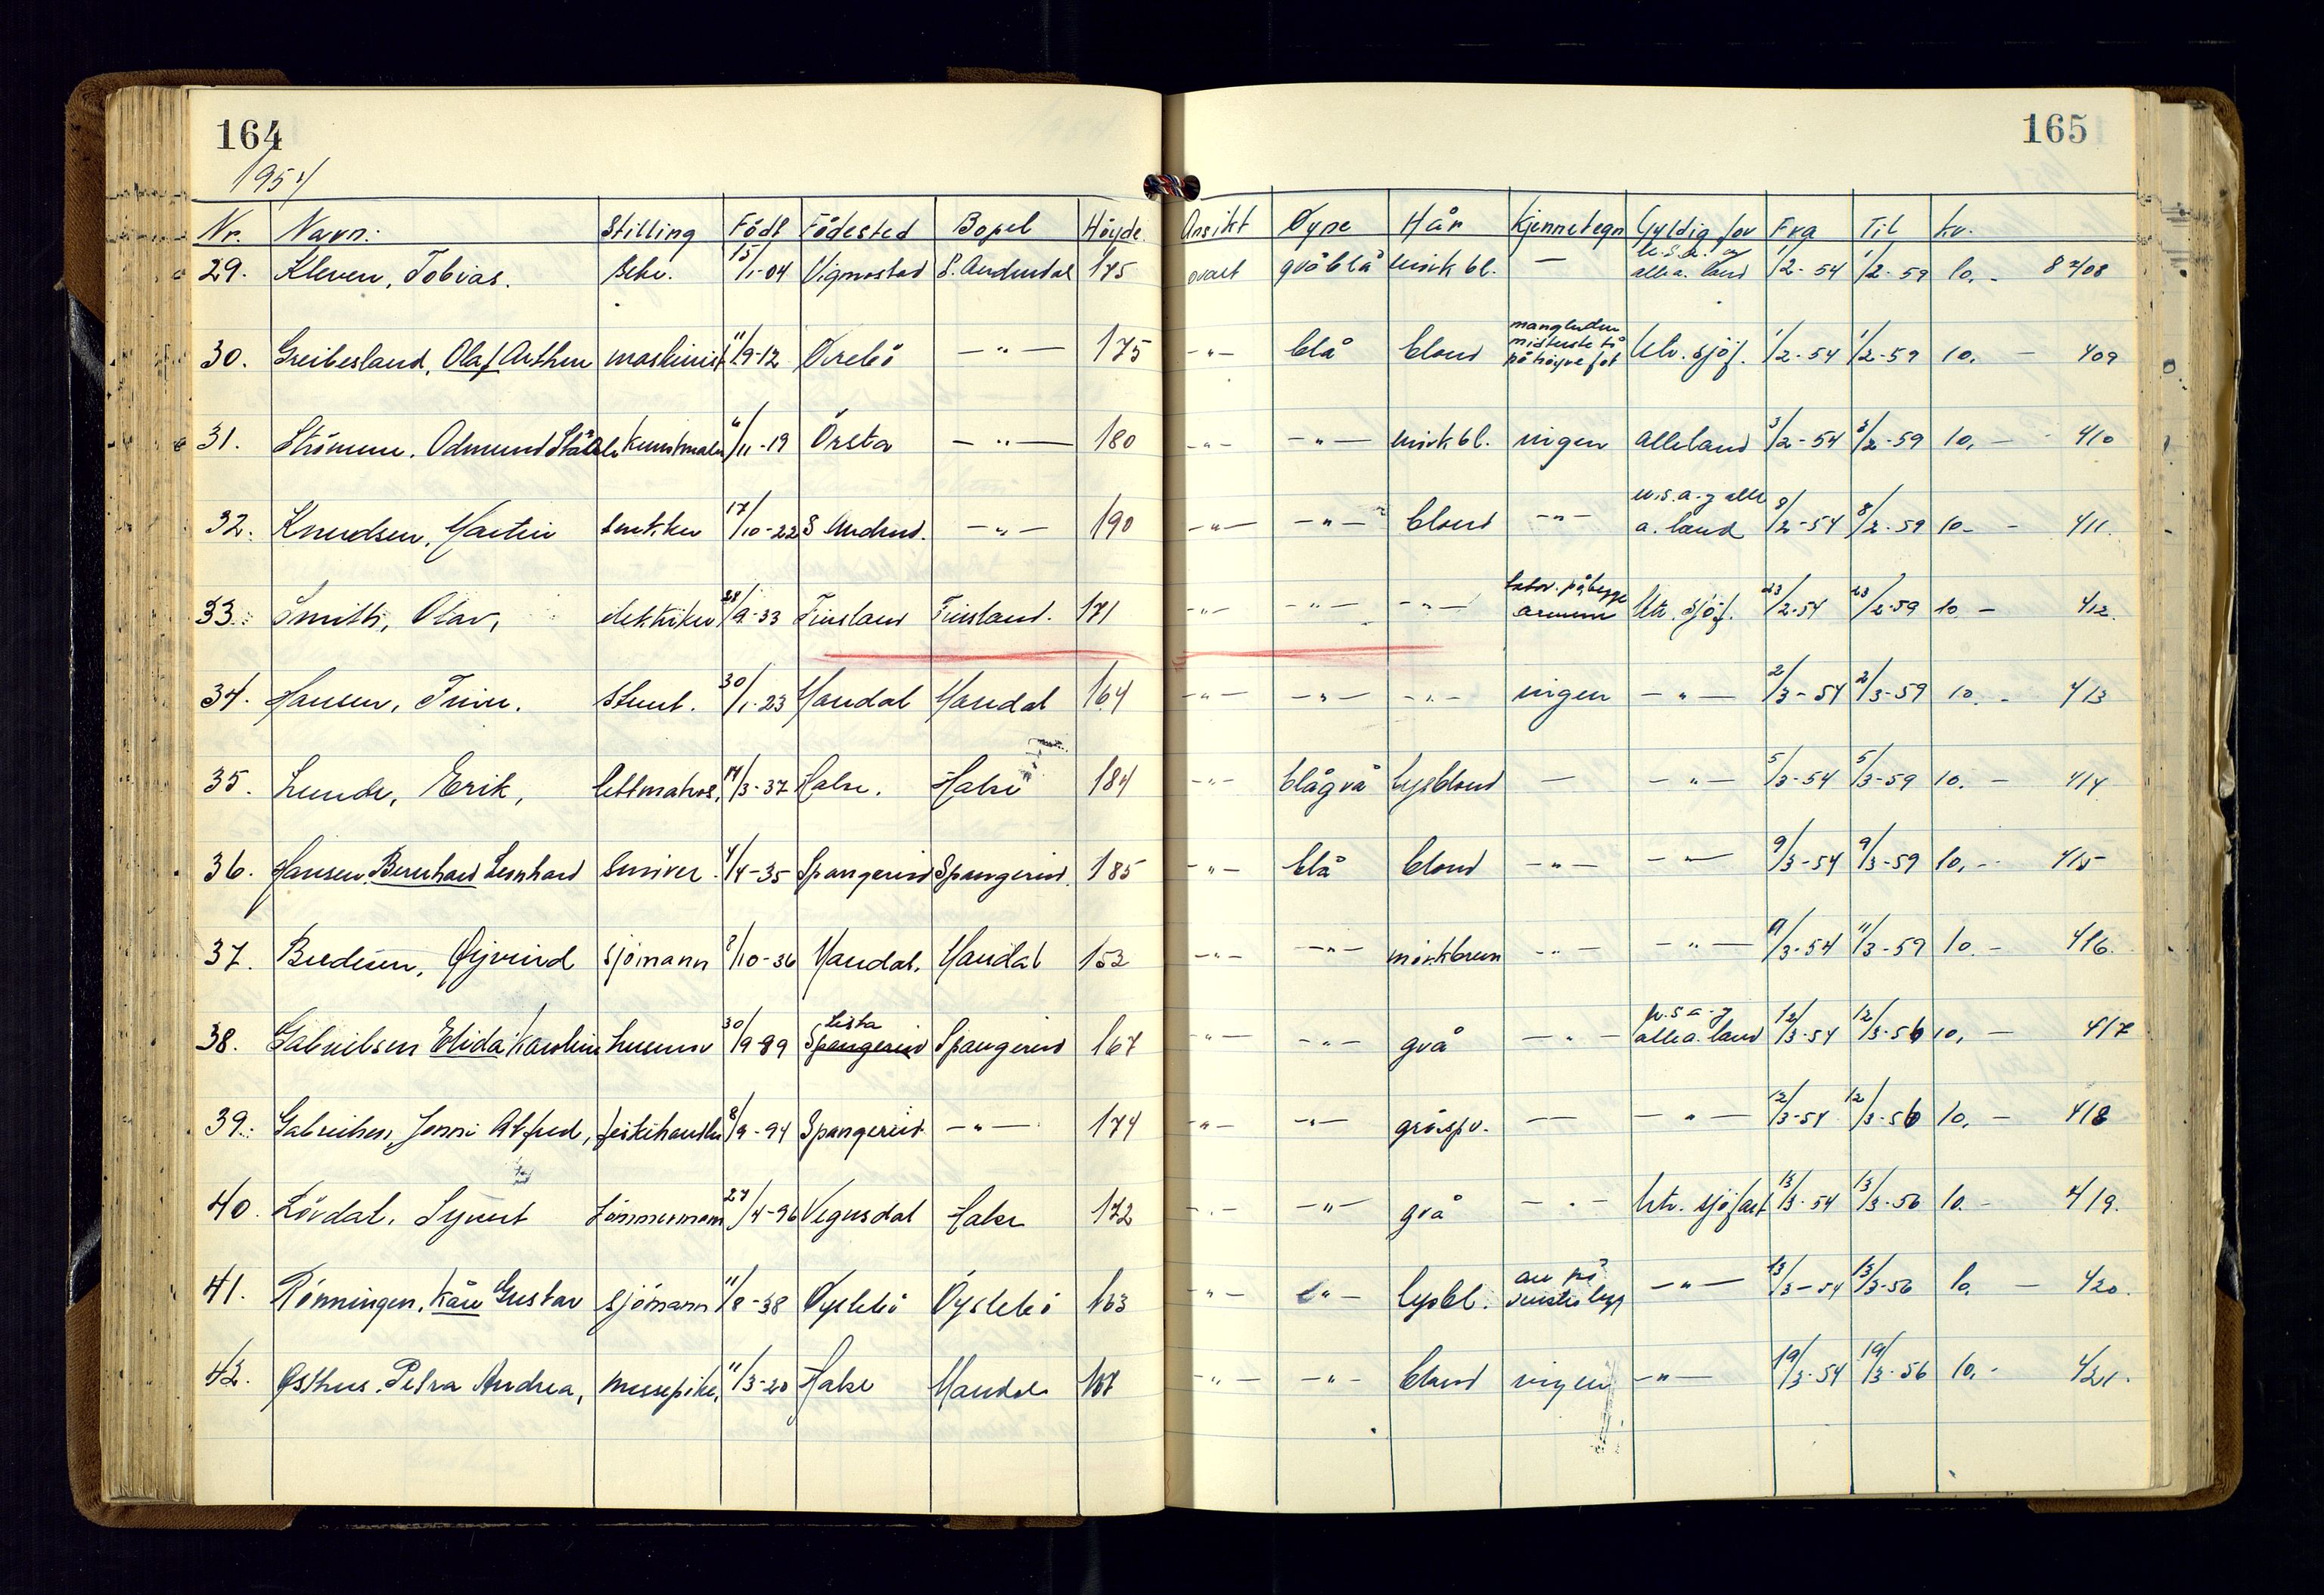 164
165
1954
Nr. Navn: Stilling Födt Födested Bopel Höyde. Ansikt Øyne Hår Kjennetegn Gyldig for Fra Til kr.
29. Kleven, Tobias. 15/1-04 Vigmostad S. Audnedal 175 ovalt gråblå mörk bl. — U.S.A. og alle a. land 1/2-54 1/2-59 10,- 82408
30. Greibesland, Olaf Arthur maskinist 11/9-12 Øvrebö — " — 175 - " - blå blond manglende midterste tå på höyre fot utv. sjöf. 1/2-54 1/2-59 10, - 409
31. Strömme, Odmund Ståle kunstmaler 6/11-19 Örsta — " — 180 - " - - " - mörk bl. ingen alle land 3/2-54 3/2-59 10, - 410
32. Knudsen, Martin 17/10-22 S Audned. - " - 190 - " - - " - blond - " - u.s.a. og alle a. land 8/2-54 8/2-59 10 - 411.
33. Smith, Olav, elektriker 28/9-33 Finsland Finsland. 171 - " - - " - - " - tatov. på begge armene utv. sjöf. 23/2-54 23/2-59 10 - 412.
34. Hansen, Finn. Stuert. 30/1-23 Mandal Mandal 164 - " - - " - - " - ingen - " - 2/3-54 2/3-59 10. - 413
35. Lunde, Erik, lettmatros, 14/3-37 Halse. Halse 184 - " - blågrå lysblond — - " - 5/3-54 5/3-59 10. - 414
36. Hansen, Bernhard Leonhard 4/4-35 Spangereid Spangereid. 185 - " - blå blond - " - - " - 9/3-54 9/3-59 10, - 415
37. Øyvind sjömann 2/10-36 Mandal, Mandal 153 - " - - " - mörkbrun - " - - " - 11/3-54 11/3-59 10. - 416.
38. Gabrielsen Elida Karoline husmor 30/9-89 Lista Spangereid Spangereid 167 - " - - " - grå - " - u.s.a. og alle a. land 12/3-54 12/3-56 10, - 417
39. Gabrielsen, Jonni Alfred, fiskehandler 8/9-94 Spangereid - " - 174 - " - - " - gråspr. — - " - 12/3-54 12/3-56 10, - 418
40. Lövdal, Syvert tömmermann 27/4-96 Vegusdal Halse 172 - " - - " - grå - " - utv. sjöfart 13/3-54 13/3-56 10. - 419.
41. Rönningen, Kåre Gustav sjömann 11/8-38 Öyslebö Öyslebö 163 - " - - " - lysbl. arr på venstre legg - " - 13/3-54 13/3-56 10 - 420.
42. Østhus, Petra Andrea, messepike, 11/3-20 Halse Mandal 167 - " - - " - blond ingen - " - 19/3-54 19/3-56 10, - 421.